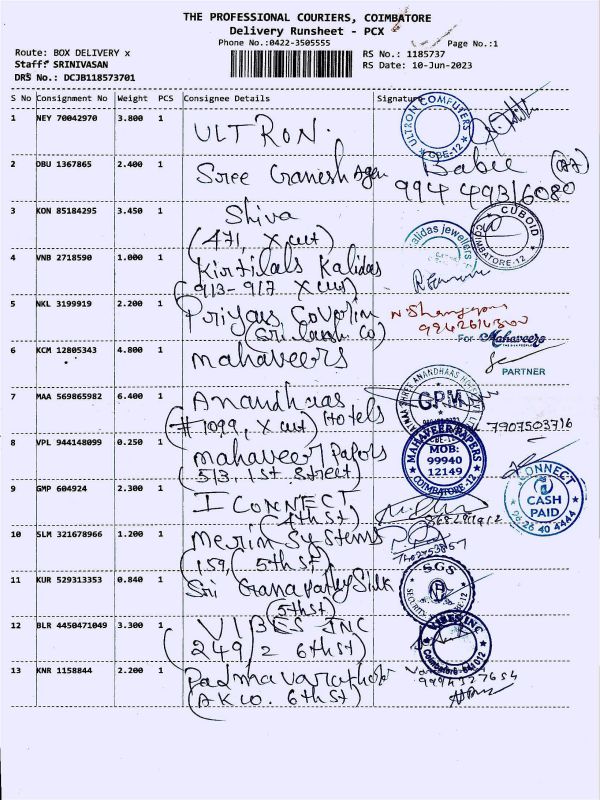 THE PROFESSIONAL COURIERS, COIMBATORE
Delivery Runsheet - PCX
Phone No.:0422-3505555
Page No.:1
Route: BOX DELIVERY x
RS No.: 1185737
Staff: SRINIVASAN
RS Date: 10-Jun-2023
DRS No.: DCJB118573701
S No Consignment No Weight PCS Consignee Details Signature
1 NEY 70042970 3.800 1 ULTRON.
ULTRON COMPUTERS
CBE-12
2 DBU 1367865 2.400 1 Sree Ganesh Agen
994 49316080
3 KON 85184295 3.450 1 Shiva
(471, X cut)
CUBOID
COIMBATORE-12
4 VNB 2718590 1.000 1 Kirtilals Kalidas
(913-917 X cut)
alidas jewellers
5 NKL 3199919 2.200 1 Priyas
6 KCM 12805343 4.800 1 mahaveers
For Mahaveers
PARTNER
7 MAA 569865982 6.400 1 Anandhaas Hotels
(#1099, X cut)
GPM
7907503716
8 VPL 944148099 0.250 1 mahaveer Papers
(513, 1st Street)
MAHAVEER PAPERS
MOB:
99940
12149
COIMBATORE-12
9 GMP 604924 2.300 1 I CONNECT
(4th St)
CONNECT
CASH
PAID
10 SLM 321678966 1.200 1 Merim Systems
(159, 5th St)
11 KUR 529313353 0.840 1 Sri Ganapathy Silk
(5th St)
SGS
12 BLR 4450471049 3.300 1 VIBES INC
(249/2 6th St)
VIBES INC
Coimbatore-641012
13 KNR 1158844 2.200 1 Padma
(A K Co. 6th St)